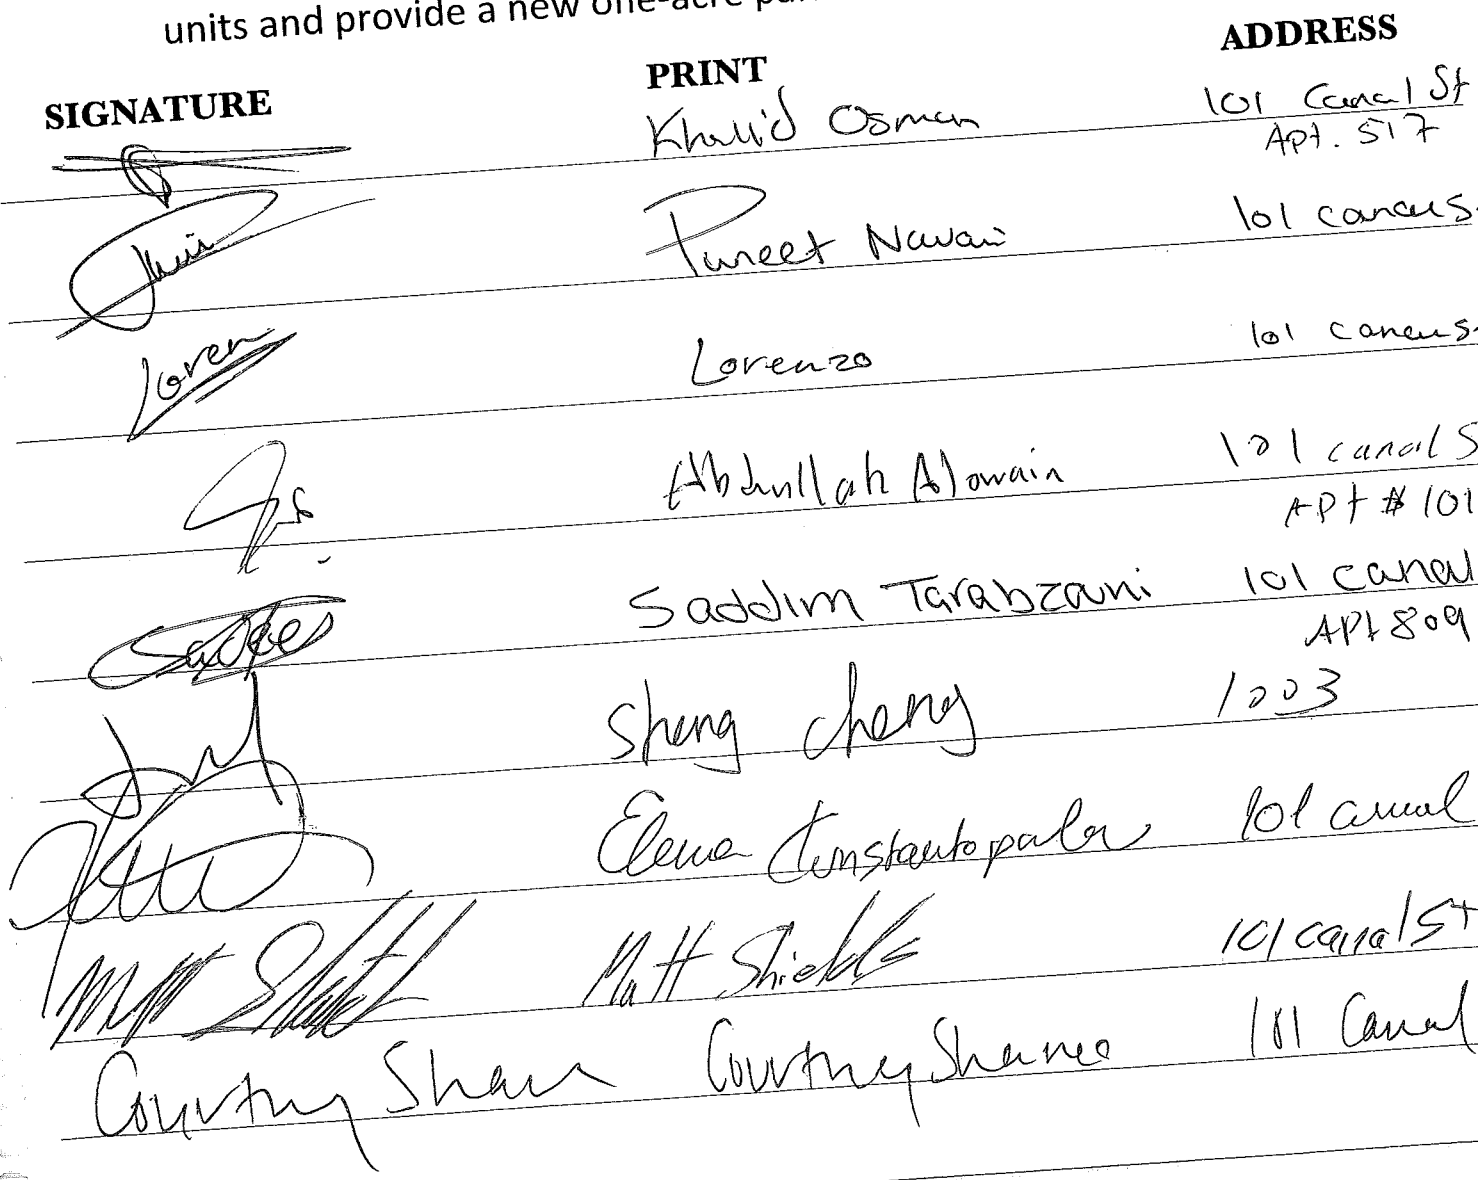 units and provide a new one-acre
SIGNATURE PRINT ADDRESS
Khalid Osman 101 Canal St
Apt. 517
Puneet 101 canal S
Loren Lorenzo 101 canal S
Abdullah Alowain 101 canal S
APt # 101
Saddim Tarabzouni 101 canal
APt 809
Sheng cheng 1003
Elena 101 canal
Matt Shields Matt Shields 101 canal St
Courtney Courtney 101 Canal